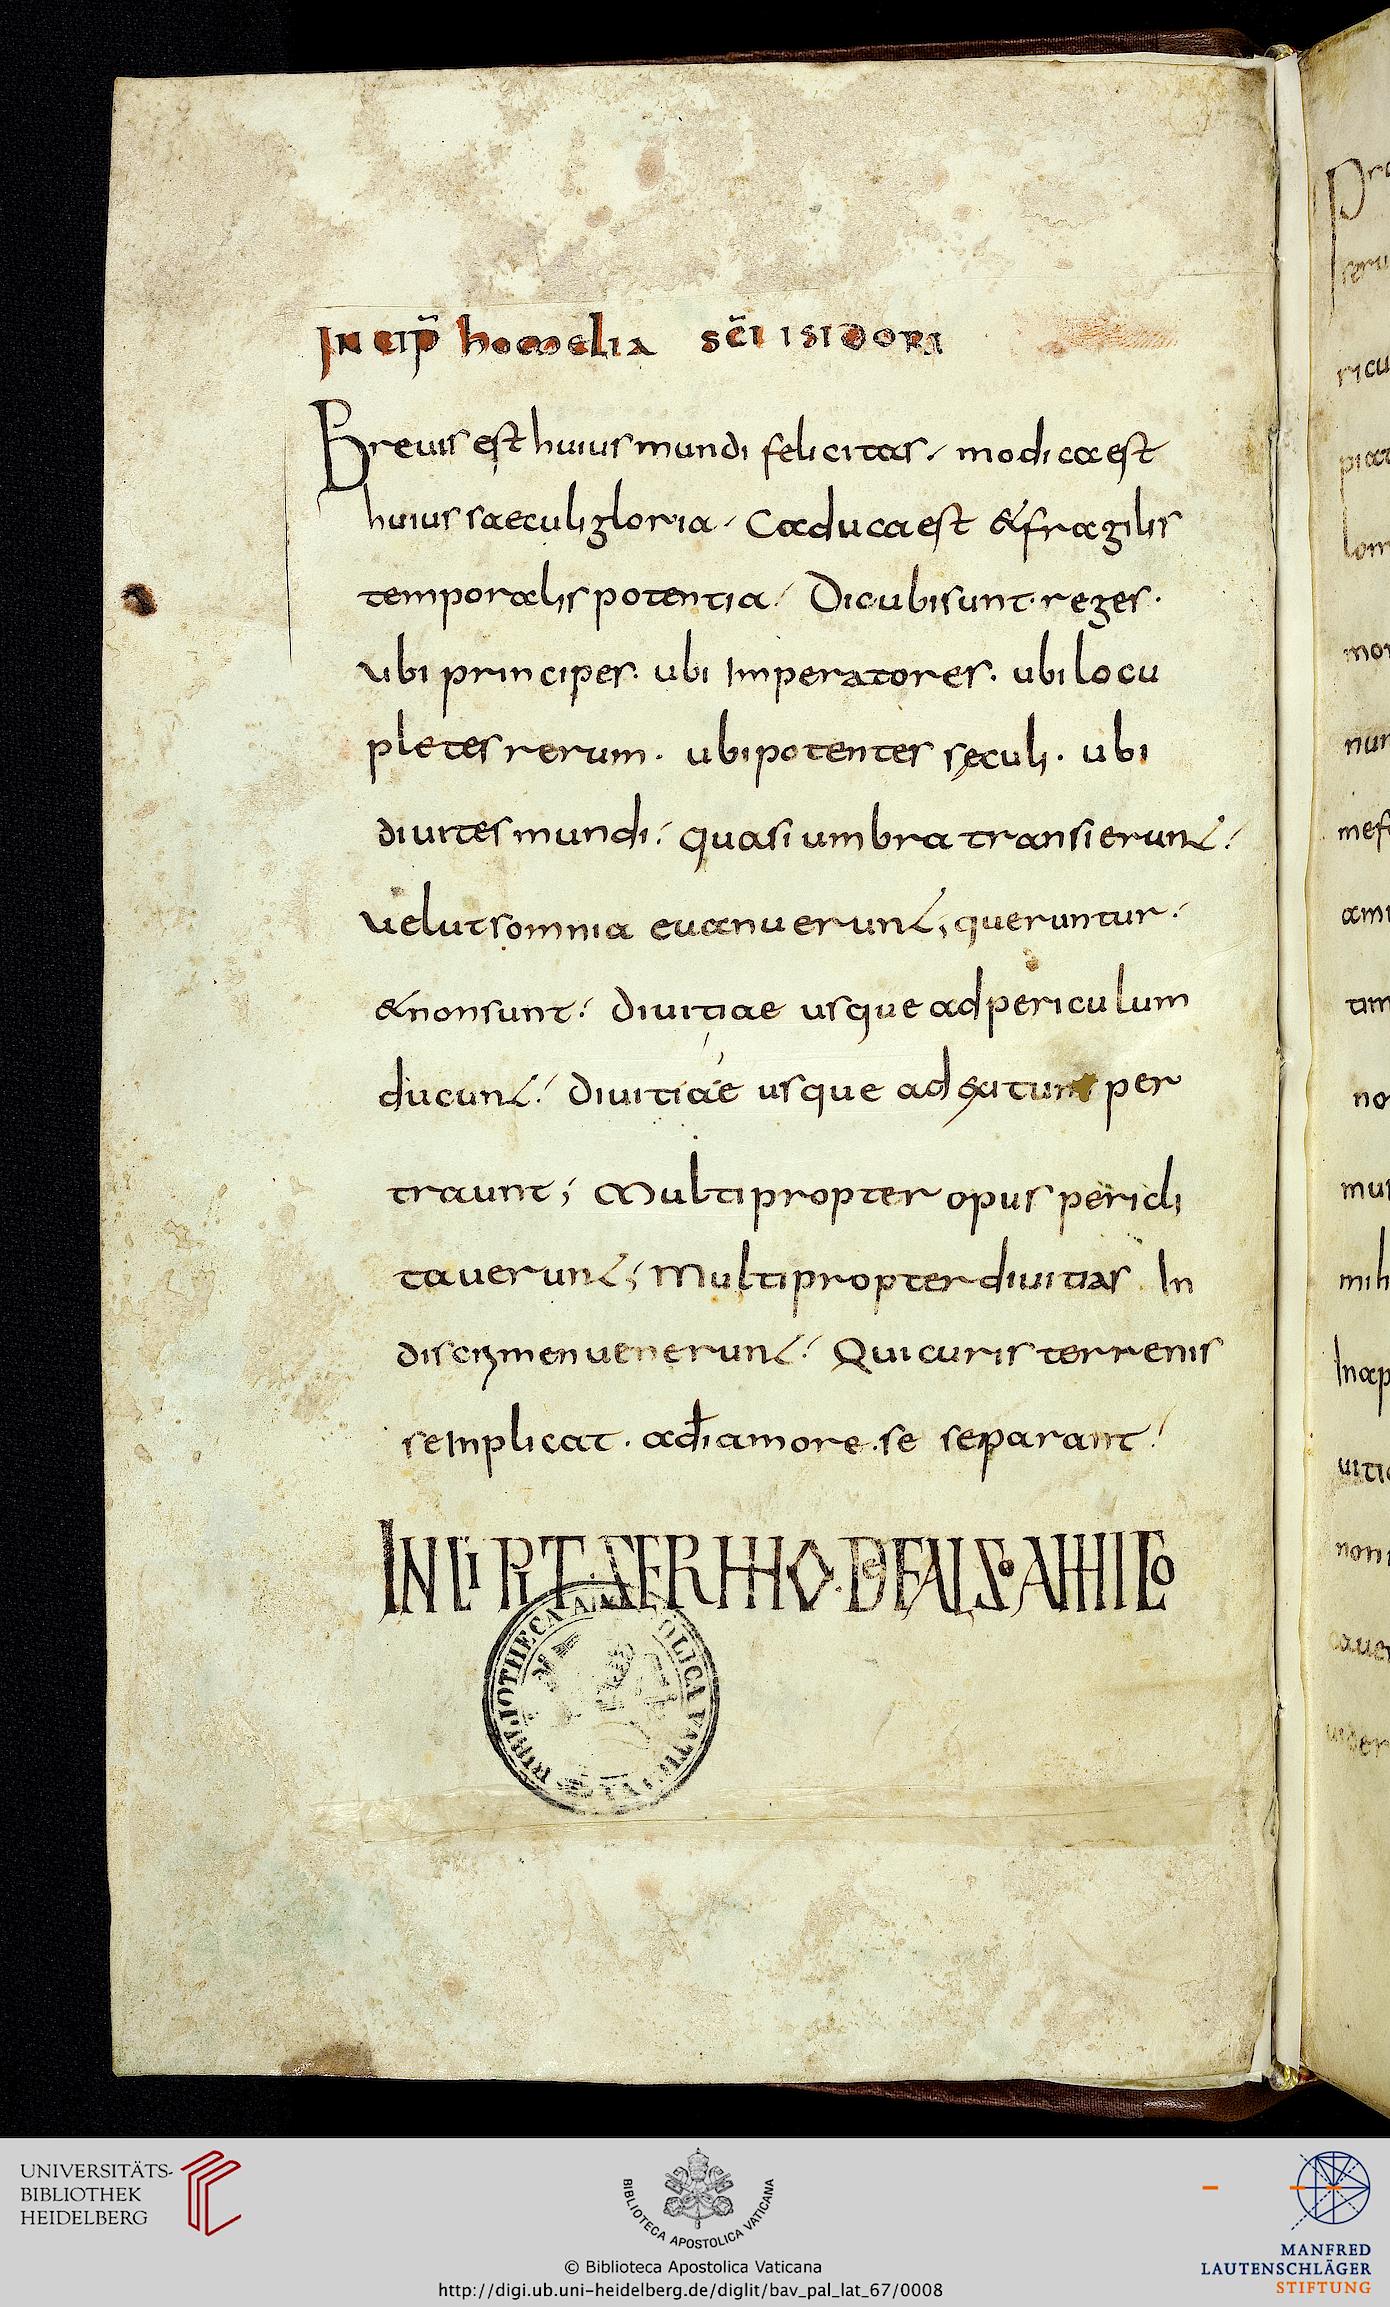 INCIP̄ homelia sc̄i isidori
Breuis est huius mundi felicitas, modica est
huius saeculi gloria, Caduca est & fragilis
temporalis potentia, Dic ubi sunt reges.
Ubi principes. ubi Imperatores. ubi locu
pletes rerum. ubi potentes sęculi. ubi
diuites mundi, quasi umbra transierunt,
uelut somnia euanuerunt; queruntur,
& non sunt, diuitiae usque ad periculum
ducunt, diuitiae usque ad per
traunt; Multi propter opus pericli
tauerunt; Multi propter diuitias In
discrimen uenerunt, Qui curis terrenis
se Inplicat. a dī amore. se separant,
INCIPIT. SERMO. DE FALSO AMICO
BIBLIOTHECA APOSTOLICA VATICANA
Pr
seru
ricu
piat
lom
mor
nun
mef
ami
tim
no
mul
mih
Inap
uitia
non
caue
uider
UNIVERSITÄTS-
BIBLIOTHEK
HEIDELBERG
BIBLIOTECA APOSTOLICA VATICANA
© Biblioteca Apostolica Vaticana
http://digi.ub.uni-heidelberg.de/diglit/bav_pal_lat_67/0008
MANFRED
LAUTENSCHLÄGER
STIFTUNG